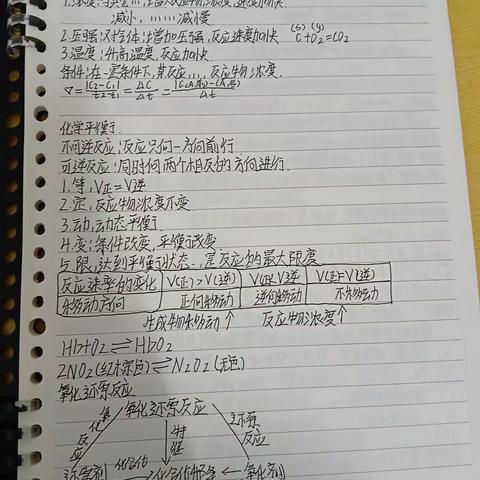 减小，……减小慢
2.压强：对气体：增加压强，反应速度加快 C(s)+O2(g)=CO2
3.温度：升高温度，反应加快
条件：在一定条件下，某反应……反应物浓度.
化学平衡.
不可逆反应：反应只向一方向前行.
可逆反应：同时向两个相反的方向进行.
1.等，V正=V逆
2.定，反应物浓度不变.
3.动，动态平衡.
4.变：条件改变，平衡改变.
5.限，达到平衡状态，是反应的最大限度
反应速率的变化 V(正)>V(逆) V(正)<V逆 V(正)=V(逆)
移动方向 正向移动 逆向移动 不移动
生成物移动↑ 反应物浓度↑
Hb+O2⇌HbO2
2NO2(红棕色)⇌N2O2(无色)
氧化还原反应
氧化还原反应
氧化反应 特征 还原反应
还原剂 化合价 氧化剂